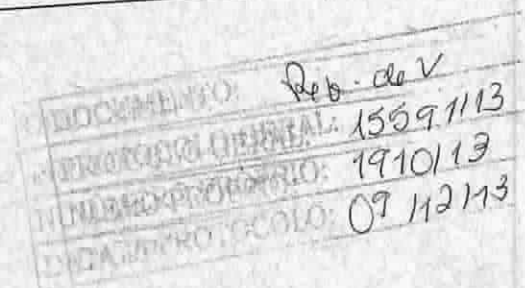 DOCUMENTO: Reb. de V
PROTOCOLO GERAL: 15591/13
NÚMERO PRÓPRIO: 1910/13
DATA PROTOCOLO: 09/12/13